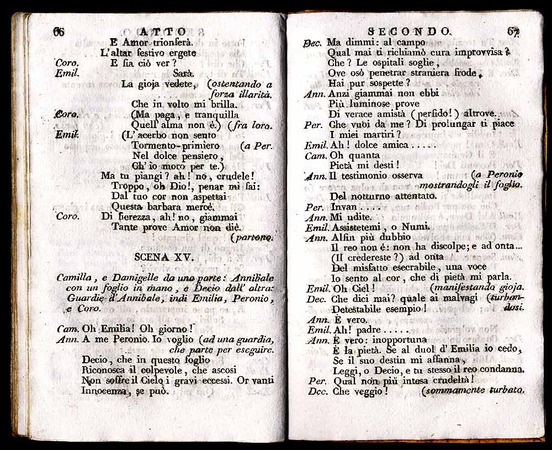 66 ATTO
E Amor trionferà.
L'altar festivo ergete
Coro. E fia ciò ver?
Emil. Sarà.
La gioja vedete, (ostentando a
forza illarità.
Che in volto mi brilla.
Coro. (Ma paga, e tranquilla
Quell' alma non è.) (fra loro.
Emil. (L' acerbo non sento
Tormento primiero (a Per.
Nel dolce pensiero,
Ch' io moro per te.)
Ma tu piangi? ah! no, crudele!
Troppo, oh Dio!, penar mi fai:
Dal tuo cor non aspettai
Questa barbara mercé.
Coro. Di fierezza, ah! no, giammai
Tante prove Amor non diè.
(partono.
SCENA XV.
Camilla, e Damigelle da una parte: Annibale
con un foglio in mano, e Decio dall' altra:
Guardie d'Annibale, indi Emilia, Peronio,
e Coro.
Cam. Oh Emilia! Oh giorno!
Ann. A me Peronio. Io voglio (ad una guardia,
che parte per eseguire.
Decio, che in questo foglio
Riconosca il colpevole, che ascosi
Non soffre il Cielo i gravi eccessi. Or vanti
Innocenza, se può.
SECONDO. 67
Dec. Ma dimmi: al campo
Qual mai ti richiamò cura improvvisa?
Che? Le ospitali soglie,
Ove osò penetrar straniera frode,
Hai pur sospette?
Ann. Anzi giammai non ebbi
Più luminose prove
Di verace amistà (perfido!) altrove.
Per. Che vuoi da me? Di prolungar ti piace
I miei martiri?
Emil. Ah! dolce amica.....
Cam. Oh quanta
Pietà mi desti!
Ann. Il testimonio osserva (a Peronio
mostrandogli il foglio.
Del notturno attentato.
Per. Invan.....
Ann. Mi udite.
Emil. Assistetemi, o Numi.
Ann. Alfin più dubbio
Il reo non è: non ha discolpe; e ad onta...
(Il credereste?) ad onta
Del misfatto esecrabile, una voce
Io sento al cor, che di pietà mi parla.
Emil. Oh Ciel! (manifestando gioja.
Dec. Che dici mai? quale ai malvagi (turban-
Detestabile esempio! dosi.
Ann. È vero.
Emil. Ah! padre.....
Ann. È vero: inopportuna
È la pietà. Se al duol d' Emilia io cedo,
Se il suo destin mi affanna,
Leggi, o Decio, e tu stesso il reo condanna.
Per. Qual non più intesa crudeltà!
Dec. Che veggio! (sommamente turbato.